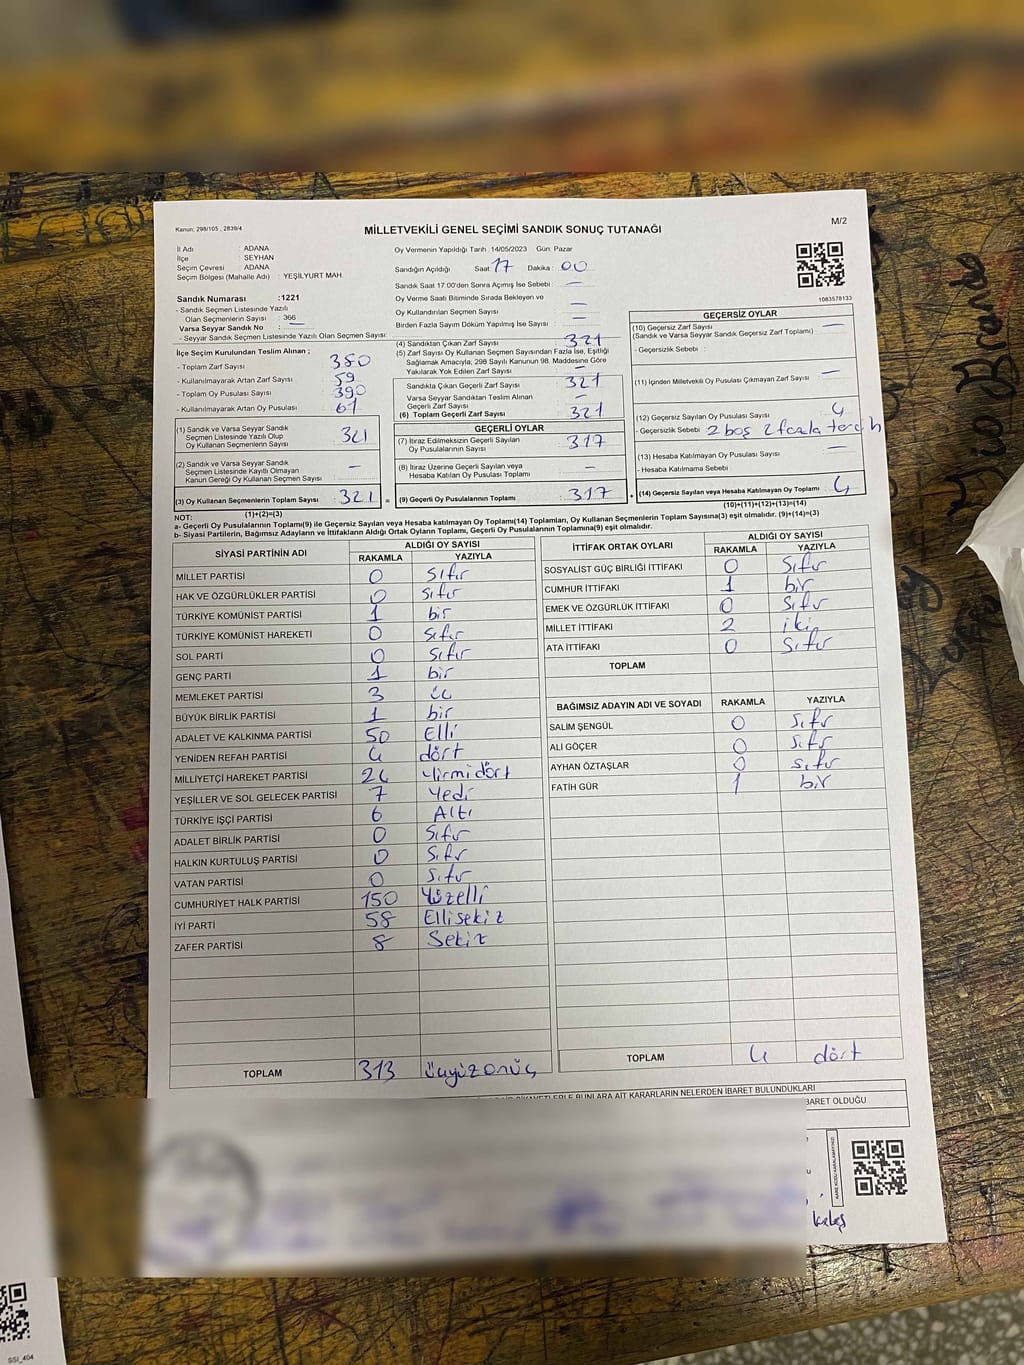 Kanun: 298/105 , 2839/4
MİLLETVEKİLİ GENEL SEÇİMİ SANDIK SONUÇ TUTANAĞI
M/2
İl Adı : ADANA
İlçe : SEYHAN
Seçim Çevresi : ADANA
Seçim Bölgesi (Mahalle Adı) : YEŞİLYURT MAH.
Sandık Numarası :1221
- Sandık Seçmen Listesinde Yazılı
Olan Seçmenlerin Sayısı : 366
Varsa Seyyar Sandık No : —
- Seyyar Sandık Seçmen Listesinde Yazılı Olan Seçmen Sayısı:
Oy Vermenin Yapıldığı Tarih :14/05/2023 Gün: Pazar
Sandığın Açıldığı Saat 17 Dakika : 00
Sandık Saat 17.00'den Sonra Açımış İse Sebebi : —
Oy Verme Saati Bitiminde Sırada Bekleyen ve
Oy Kullandırılan Seçmen Sayısı : —
Birden Fazla Sayım Döküm Yapılmış İse Sayısı : —
1083578133
İlçe Seçim Kurulundan Teslim Alınan ;
- Toplam Zarf Sayısı : 380
- Kullanılmayarak Artan Zarf Sayısı : 59
- Toplam Oy Pusulası Sayısı : 390
- Kullanılmayarak Artan Oy Pusulası : 61
(1) Sandık ve Varsa Seyyar Sandık
Seçmen Listesinde Yazılı Olup
Oy Kullanan Seçmenlerin Sayısı : 321
(2) Sandık ve Varsa Seyyar Sandık
Seçmen Listesinde Kayıtlı Olmayan
Kanun Gereği Oy Kullanan Seçmen Sayısı : —
(3) Oy Kullanan Seçmenlerin Toplam Sayısı : 321 =
(1)+(2)=(3)
(4) Sandıktan Çıkan Zarf Sayısı : 321
(5) Zarf Sayısı Oy Kullanan Seçmen Sayısından Fazla İse, Eşitliği
Sağlamak Amacıyla; 298 Sayılı Kanunun 98. Maddesine Göre
Yakılarak Yok Edilen Zarf Sayısı : —
Sandıkta Çıkan Geçerli Zarf Sayısı : 321
Varsa Seyyar Sandıktan Teslim Alınan
Geçerli Zarf Sayısı : —
(6) Toplam Geçerli Zarf Sayısı : 321
GEÇERLİ OYLAR
(7) İtiraz Edilmeksizin Geçerli Sayılan
Oy Pusulalarının Sayısı : 317
(8) İtiraz Üzerine Geçerli Sayılan veya
Hesaba Katılan Oy Pusulası Sayısı : —
(9) Geçerli Oy Pusulalarının Toplamı : 317 +
GEÇERSİZ OYLAR
(10) Geçersiz Zarf Sayısı : —
(Sandık ve Varsa Seyyar Sandık Geçersiz Zarf Toplamı)
- Geçersizlik Sebebi :
(11) İçinden Milletvekili Oy Pusulası Çıkmayan Zarf Sayısı : —
(12) Geçersiz Sayılan Oy Pusulası Sayısı : 4
- Geçersizlik Sebebi : 2 boş 2 fazla tercih
(13) Hesaba Katılmayan Oy Pusulası Sayısı : —
- Hesaba Katılmama Sebebi :
(14) Geçersiz Sayılan veya Hesaba Katılmayan Oy Toplamı : 4
(10)+(11)+(12)+(13)=(14)
NOT:
a- Geçerli Oy Pusulalarının Toplamı(9) ile Geçersiz Sayılan veya Hesaba katılmayan Oy Toplamı(14) Toplamları, Oy Kullanan Seçmenlerin Toplam Sayısına(3) eşit olmalıdır. (9)+(14)=(3)
b- Siyasi Partilerin, Bağımsız Adayların ve İttifakların Aldığı Ortak Oyların Toplamı, Geçerli Oy Pusulalarının Toplamına(9) eşit olmalıdır.
SİYASİ PARTİNİN ADI ALDIĞI OY SAYISI
RAKAMLA YAZIYLA
MİLLET PARTİSİ 0 Sıfır
HAK VE ÖZGÜRLÜKLER PARTİSİ 0 Sıfır
TÜRKİYE KOMÜNİST PARTİSİ 1 bir
TÜRKİYE KOMÜNİST HAREKETİ 0 Sıfır
SOL PARTİ 0 Sıfır
GENÇ PARTİ 1 bir
MEMLEKET PARTİSİ 3 üç
BÜYÜK BİRLİK PARTİSİ 1 bir
ADALET VE KALKINMA PARTİSİ 50 Elli
YENİDEN REFAH PARTİSİ 4 dört
MİLLİYETÇİ HAREKET PARTİSİ 24 Yirmidört
YEŞİLLER VE SOL GELECEK PARTİSİ 7 Yedi
TÜRKİYE İŞÇİ PARTİSİ 6 Altı
ADALET BİRLİK PARTİSİ 0 Sıfır
HALKIN KURTULUŞ PARTİSİ 0 Sıfır
VATAN PARTİSİ 0 Sıfır
CUMHURİYET HALK PARTİSİ 150 Yüzelli
İYİ PARTİ 58 Ellisekiz
ZAFER PARTİSİ 8 Sekiz
TOPLAM 313 üçyüzonüç
İTTİFAK ORTAK OYLARI ALDIĞI OY SAYISI
RAKAMLA YAZIYLA
SOSYALİST GÜÇ BİRLİĞİ İTTİFAKI 0 Sıfır
CUMHUR İTTİFAKI 1 bir
EMEK VE ÖZGÜRLÜK İTTİFAKI 0 Sıfır
MİLLET İTTİFAKI 2 iki
ATA İTTİFAKI 0 Sıfır
TOPLAM
BAĞIMSIZ ADAYIN ADI VE SOYADI RAKAMLA YAZIYLA
SALİM ŞENGÜL 0 Sıfır
ALİ GÖÇER 0 Sıfır
AYHAN ÖZTAŞLAR 0 Sıfır
FATİH GÜR 1 bir
TOPLAM 4 dört
BUNLARA AİT KARARLARIN NELERDEN İBARET BULUNDUKLARI
BARET OLDUĞU
SSI_404